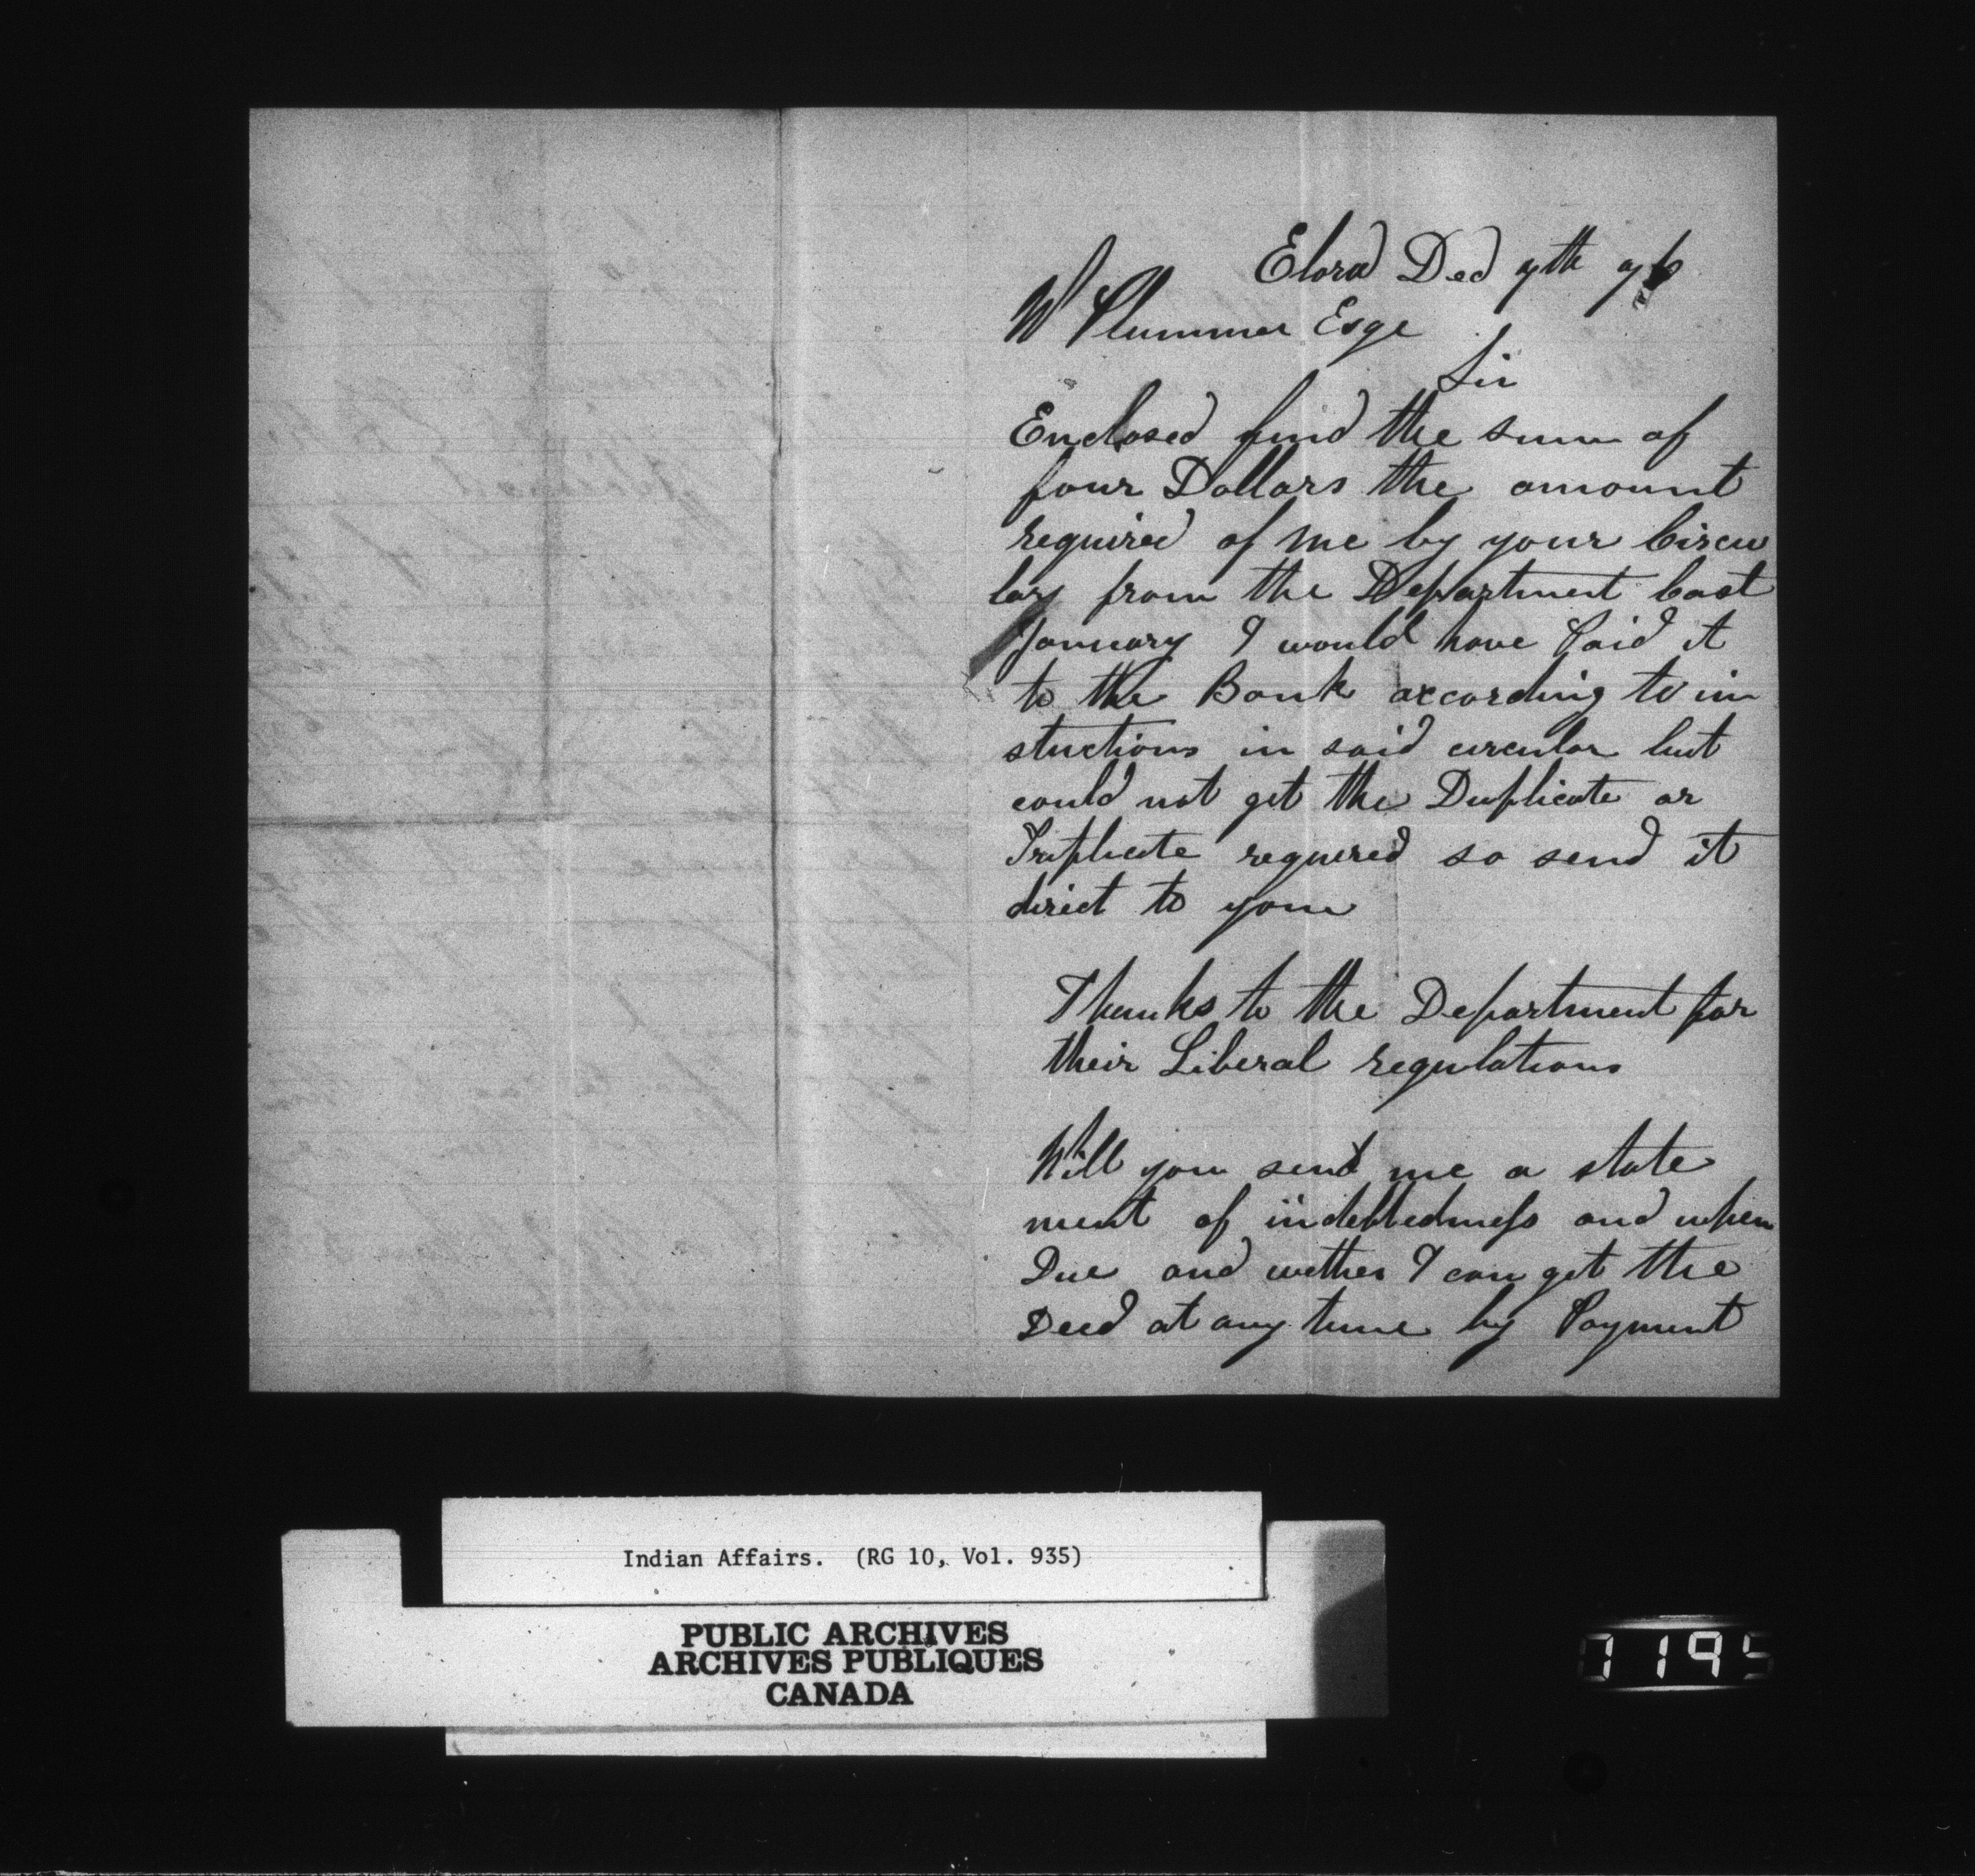 Elora Dec 7th 76
W Plummer Esqe
Sir
Enclosed find the sum of
four Dollars the amount
required of me by your Circu
lar from the Department last
January I would have Paid it
to the Bank according to in
stuctions in said circular but
could not get the Duplicate or
Triplicate required so send it
direct to you
Thanks to the Department for
their Liberal regulations
Will you send me a state
ment of indebtedness and when
Due and wether I can get the
Deed at any time by Payment
Indian Affairs. (RG 10, Vol. 935)
PUBLIC ARCHIVES
ARCHIVES PUBLIQUES
CANADA
1195